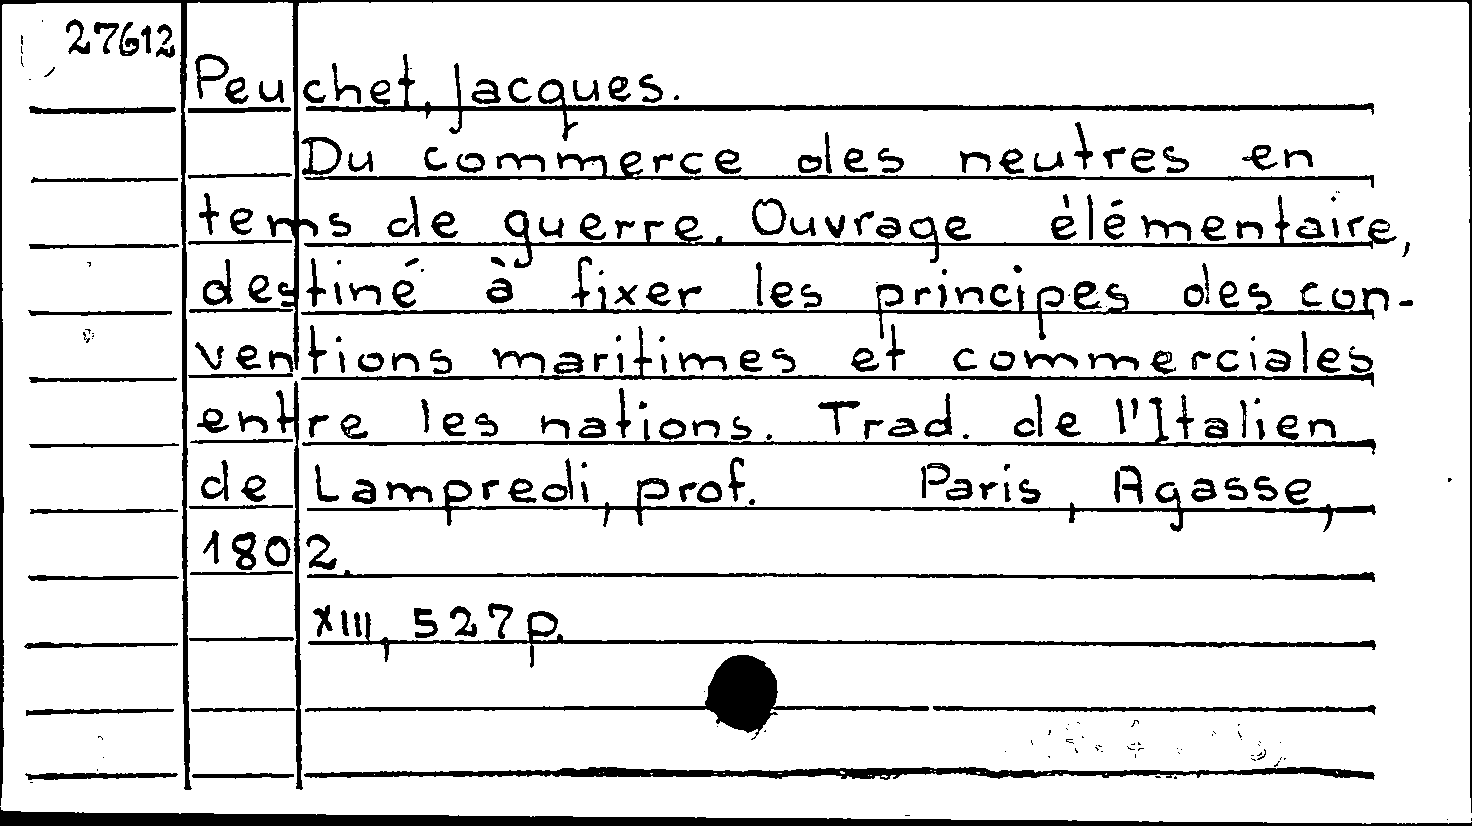 27612
Peuchet, Jacques.
Du commerce des neutres en
tems de guerre. Ouvrage élémentaire,
destiné à fixer les principes des con-
ventions maritimes et commerciales
entre les nations. Trad. de l'Italien
de Lampredi, prof. Paris, Agasse,
1802.
XIII, 527 p.